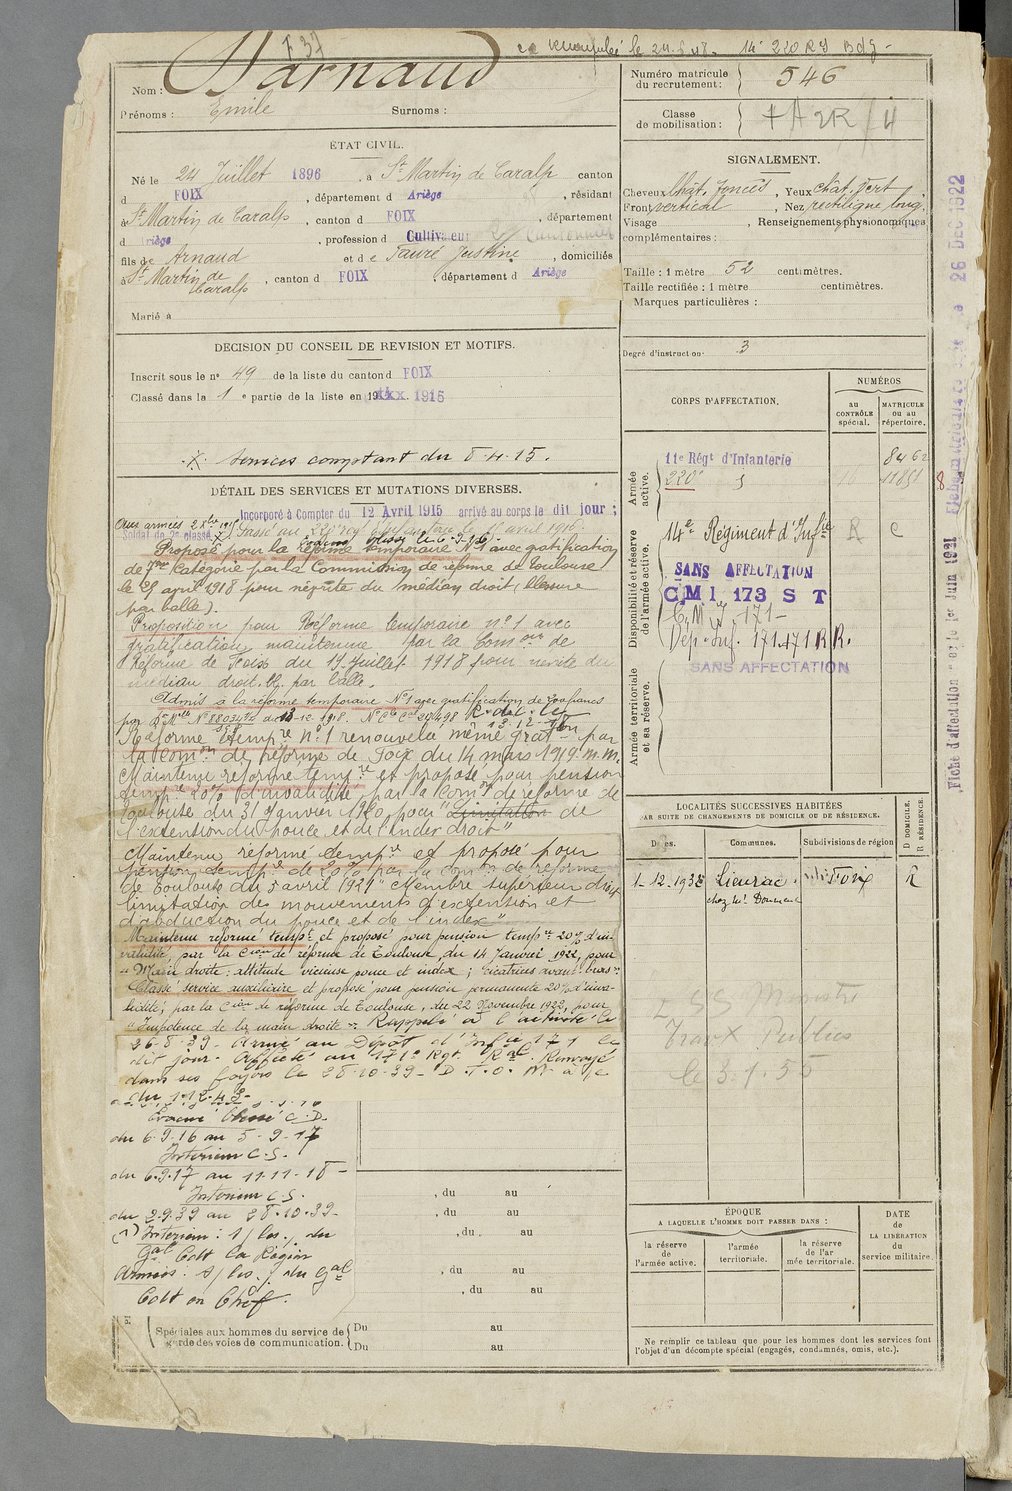 F 37
le 24.6.48. 14e 220 RI Bdg -
Nom : Darnaud
Prénoms : Emile Surnoms :
ÉTAT CIVIL.
Né le 24 Juillet 1896, à St Martin de Caralp canton
d FOIX, département d Ariège, résidant
à St Martin de Caralp, canton d FOIX, département
d Ariège, profession d Cultivateur Cantonnier
fils de Arnaud et de Fauré Justine, domiciliés
à St Martin de Caralp, canton d FOIX, département d Ariège
Marié à
DECISION DU CONSEIL DE REVISION ET MOTIFS.
Inscrit sous le n° 49 de la liste du canton d FOIX
Classé dans la 1 e partie de la liste en 19 1915
Services comptant du 8.4.15.
DÉTAIL DES SERVICES ET MUTATIONS DIVERSES.
Incorporé à Compter du 12 Avril 1915 arrivé au corps le dit jour ;
Soldat de 2e classe Passé au 220e rég d'Infanterie le 11 avril 1916.
Proposé pour la réforme temporaire N°1 avec gratification
de 7me Catégorie par la Commission de réforme de Toulouse
le 29 avril 1918 pour névrite du médian droit (blessure
par balle).
Proposition pour Réforme temporaire n°1 avec
gratification maintenue par la Comon de
Réforme de Foix du 17 Juillet 1918 pour névrite du
médian droit. Bl. par balle.
Admis à la réforme temporaire N°1 avec gratification de
Réforme tempre n°1 renouvelé même graton par
la comon de réforme de Foix du 14 mars 1919. m.m.
Maintenu réforme tempre et proposé pour pension
tempre 20% d'invalidité par la Comon de réforme de
Toulouse du 31 Janvier 1920 pour "Limitation de
l'extension du pouce et de l'index droit"
Maintenu réformé tempre et proposé pour
pension tempre de 20% par la Comon de réforme
de Toulouse du 5 avril 1921 "Membre supérieur droit
limitation des mouvements d'extension et
d'abduction du pouce et de l'index"
Maintenu réformé tempre et proposé pour pension tempre 20% d'in-
validité, par la Cion de réforme de Toulouse, du 14 Janvier 1922, pour
"Main droite : attitude vicieuse pouce et index ; cicatrices avant-bras".
Classé service auxiliaire et proposé pour pension permanente 20% d'inva-
lidité, par la Cion de réforme de Toulouse, du 22 Novembre 1922, pour
"Impotence de la main droite". Rappelé à l'activité le
26-8-39. Arrivé au Dépôt d'Infie 171 le
dit jour. Affecté au 171e Rgt. Rgal. Renvoyé
dans ses foyers le 28-10-39.
Évacué blessé C.D.
du 6-9-16 au 5-9-17
Intérieur C.S.
du 6.9.17 au 11-11-18 -
Intérieur C.S.
du 2-9-39 au 28-10-39-
(1) Intérieur : 1/ les j. du
Gal Cdt la Région
Armées : s/ les j. du Gal
Cdt en Chef.
, du au
, du au
, du au
, du au
, du au
Spéciales aux hommes du service de garde des voies de communication. Du au
Du au
Numéro matricule du recrutement : 546
Classe de mobilisation :
SIGNALEMENT.
Cheveux Chât. foncés, Yeux chât. vert,
Front vertical, Nez rectiligne long.
Visage Renseignements physionomiques
complémentaires :
Taille : 1 mètre 52 centimètres.
Taille rectifiée : 1 mètre centimètres.
Marques particulières :
Degré d'instruction 3
CORPS D'AFFECTATION.
NUMÉROS
au CONTRÔLE spécial.
MATRICULE ou au répertoire.
Armée active.
11e Régt d'Infanterie 8462
220e
Disponibilité et réserve de l'armée active.
14e Régiment d'Infie R C
SANS AFFECTATION
CMI 173 S T
C.M.I 171-
Dép. Inf. 171.171 R R.
SANS AFFECTATION
Armée territoriale et sa réserve.
LOCALITÉS SUCCESSIVES HABITÉES
PAR SUITE DE CHANGEMENTS DE DOMICILE OU DE RÉSIDENCE.
Dates. Communes. Subdivisions de région D DOMICILE. R RÉSIDENCE.
1-12-193 Lieurac Foix R
Travx Publics
le 3.1.55
ÉPOQUE
A LAQUELLE L'HOMME DOIT PASSER DANS :
la réserve de l'armée active.
l'armée territoriale.
la réserve de l'armée territoriale.
DATE de LA LIBÉRATION du service militaire.
Ne remplir ce tableau que pour les hommes dont les services font
l'objet d'un décompte spécial (engagés, condamnés, omis, etc.).
26 DEC 1922
Fiche d'affectation le 1er Juin 1921